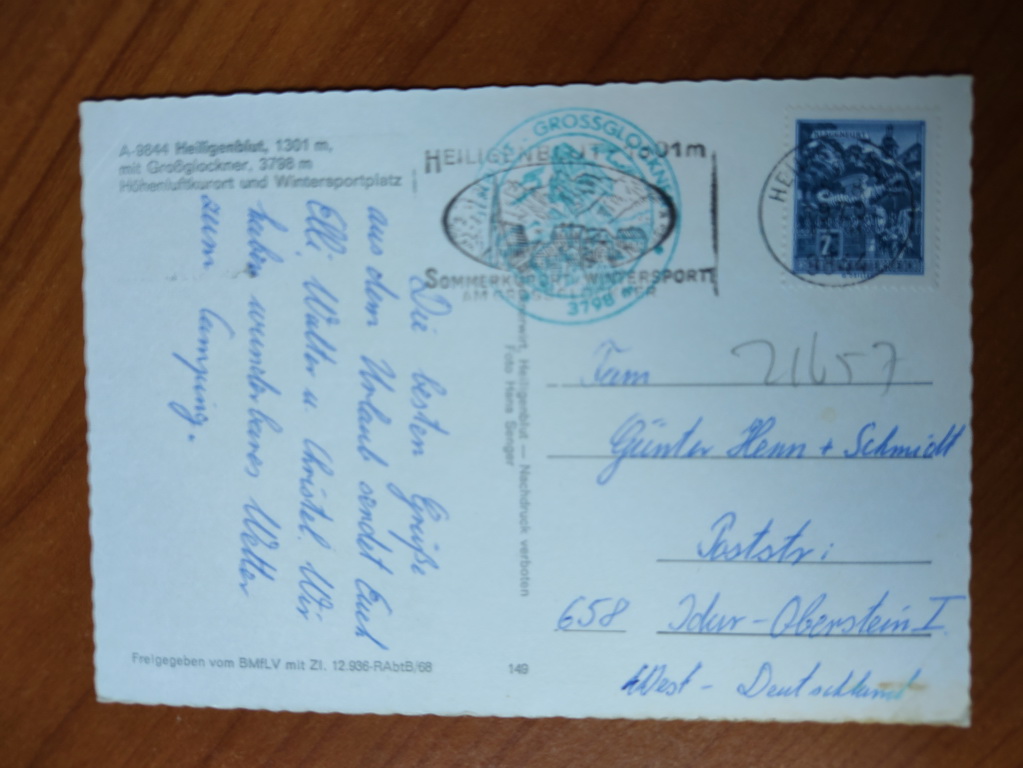 A-9844 Heiligenblut, 1301 m,
mit Großglockner, 3798 m
Höhenluftkurort und Wintersportplatz
HEILIGENBLUT 1301m
SOMMERKURORT WINTERSPORT
AM
GROSSGLOCKNER
3798 m
Die besten Grüße
aus dem Urlaub sendet Euch
Elli, Walter u. Christel. Wir
haben wunderbares Wetter
zum Camping.
Heiligenblut — Nachdruck verboten
Foto Hans Senger
Freigegeben vom BMfLV mit Zl. 12.936-RAbtB/68
149
7
21657
Günter Henn + Schmidt
Poststr:
658 Idar-Oberstein I
West-Deutschland